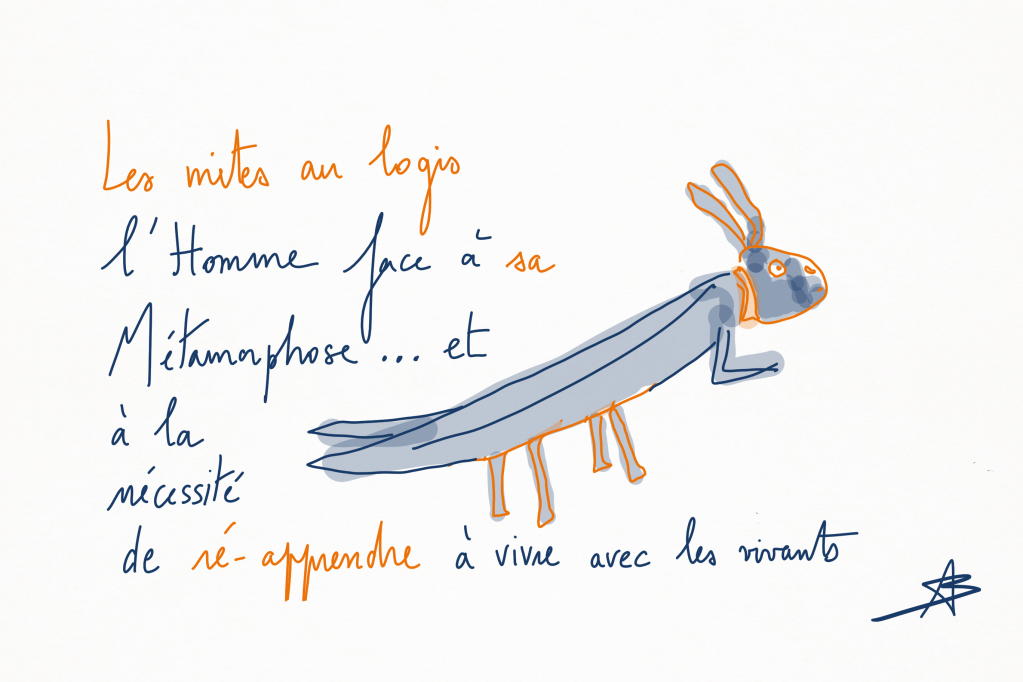 Les mites au logis
l'Homme face à sa
Métamorphose ... et
à la
nécessité
de ré-apprendre à vivre avec les vivants